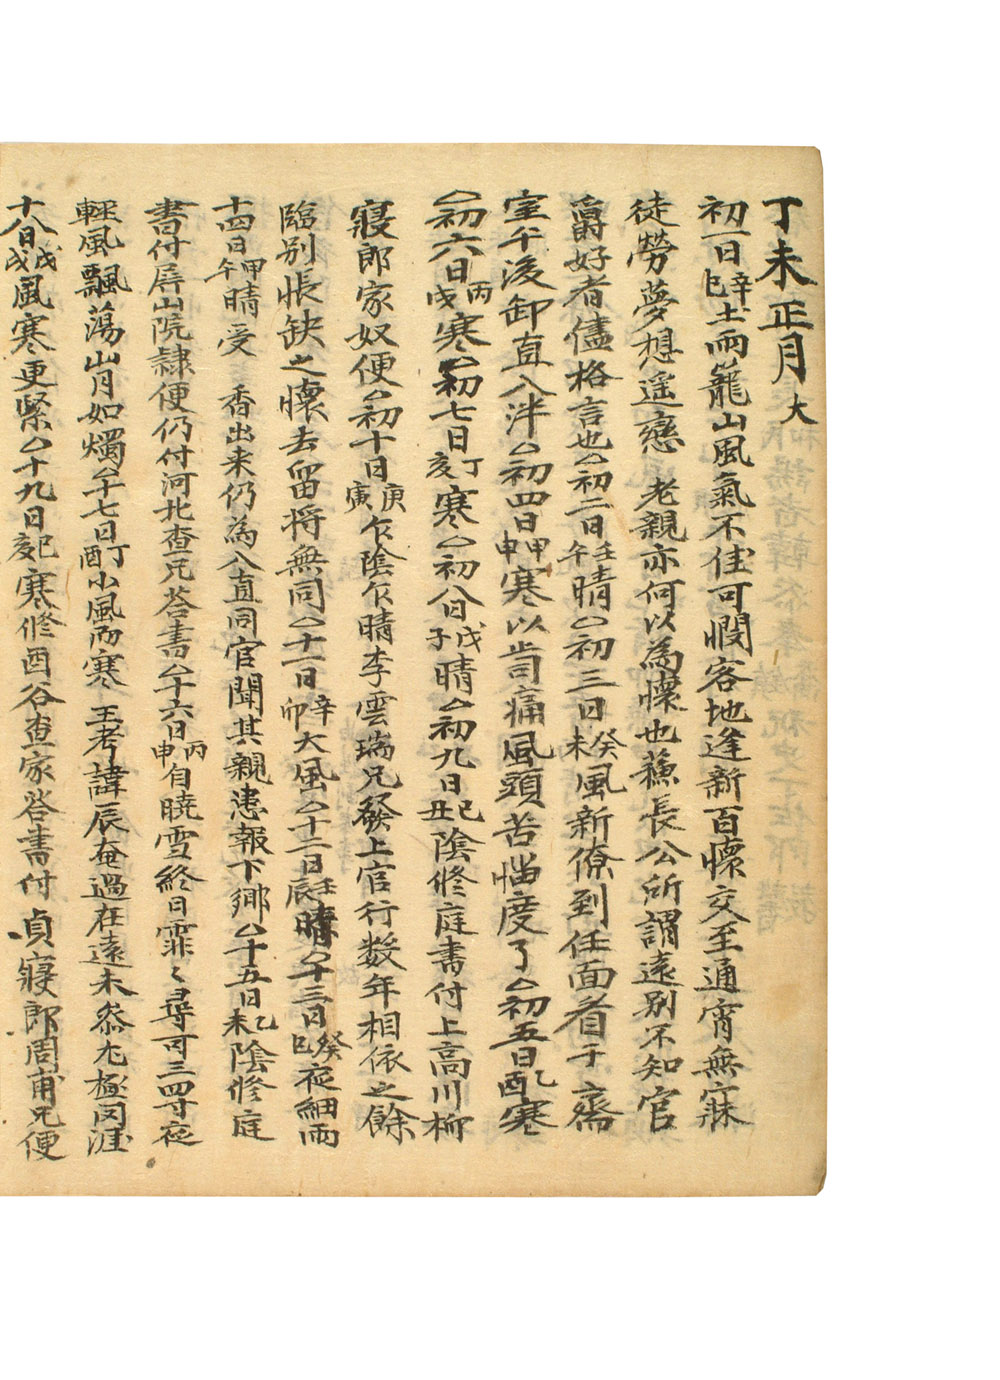 丁未正月大
初一日辛巳土雨籠山風氣不佳可憫客地逢新百懷交至通宵無寐
徒勞夢想遙戀 老親亦何以為懷也蘓長公所謂遠別不知官
爵好者儘格言也△初二日壬午晴△初三日癸未風新僚到任面看于齋
室午後卸直入泮△初四日甲申寒以齒痛風頭苦惱度了△初五日乙酉寒
△初六日丙戌寒△初七日丁亥寒△初八日戊子晴△初九日己丑陰修庭書付上高川柳
寢郎家奴便△初十日庚寅乍陰乍晴李雲瑞兄發上官行数年相依之餘
臨別悵缺之懷去留將無同△十一日辛卯大風△十二日壬辰晴△十三日癸巳夜細雨
十四日甲午晴受 香出来仍為入直同官聞其親患報下鄉△十五日乙未陰修庭
書付屏山院隸便仍付河北査兄荅書△十六日丙申自曉雪終日霏々尋可三四寸夜
輕風飄蕩山月如燭△十七日丁酉小風而寒 王考諱辰奄過在遠未叅尤極罔涯
十八日戊戌風寒更緊△十九日己亥寒修酉谷査家答書付貞寢郎周甫兄便